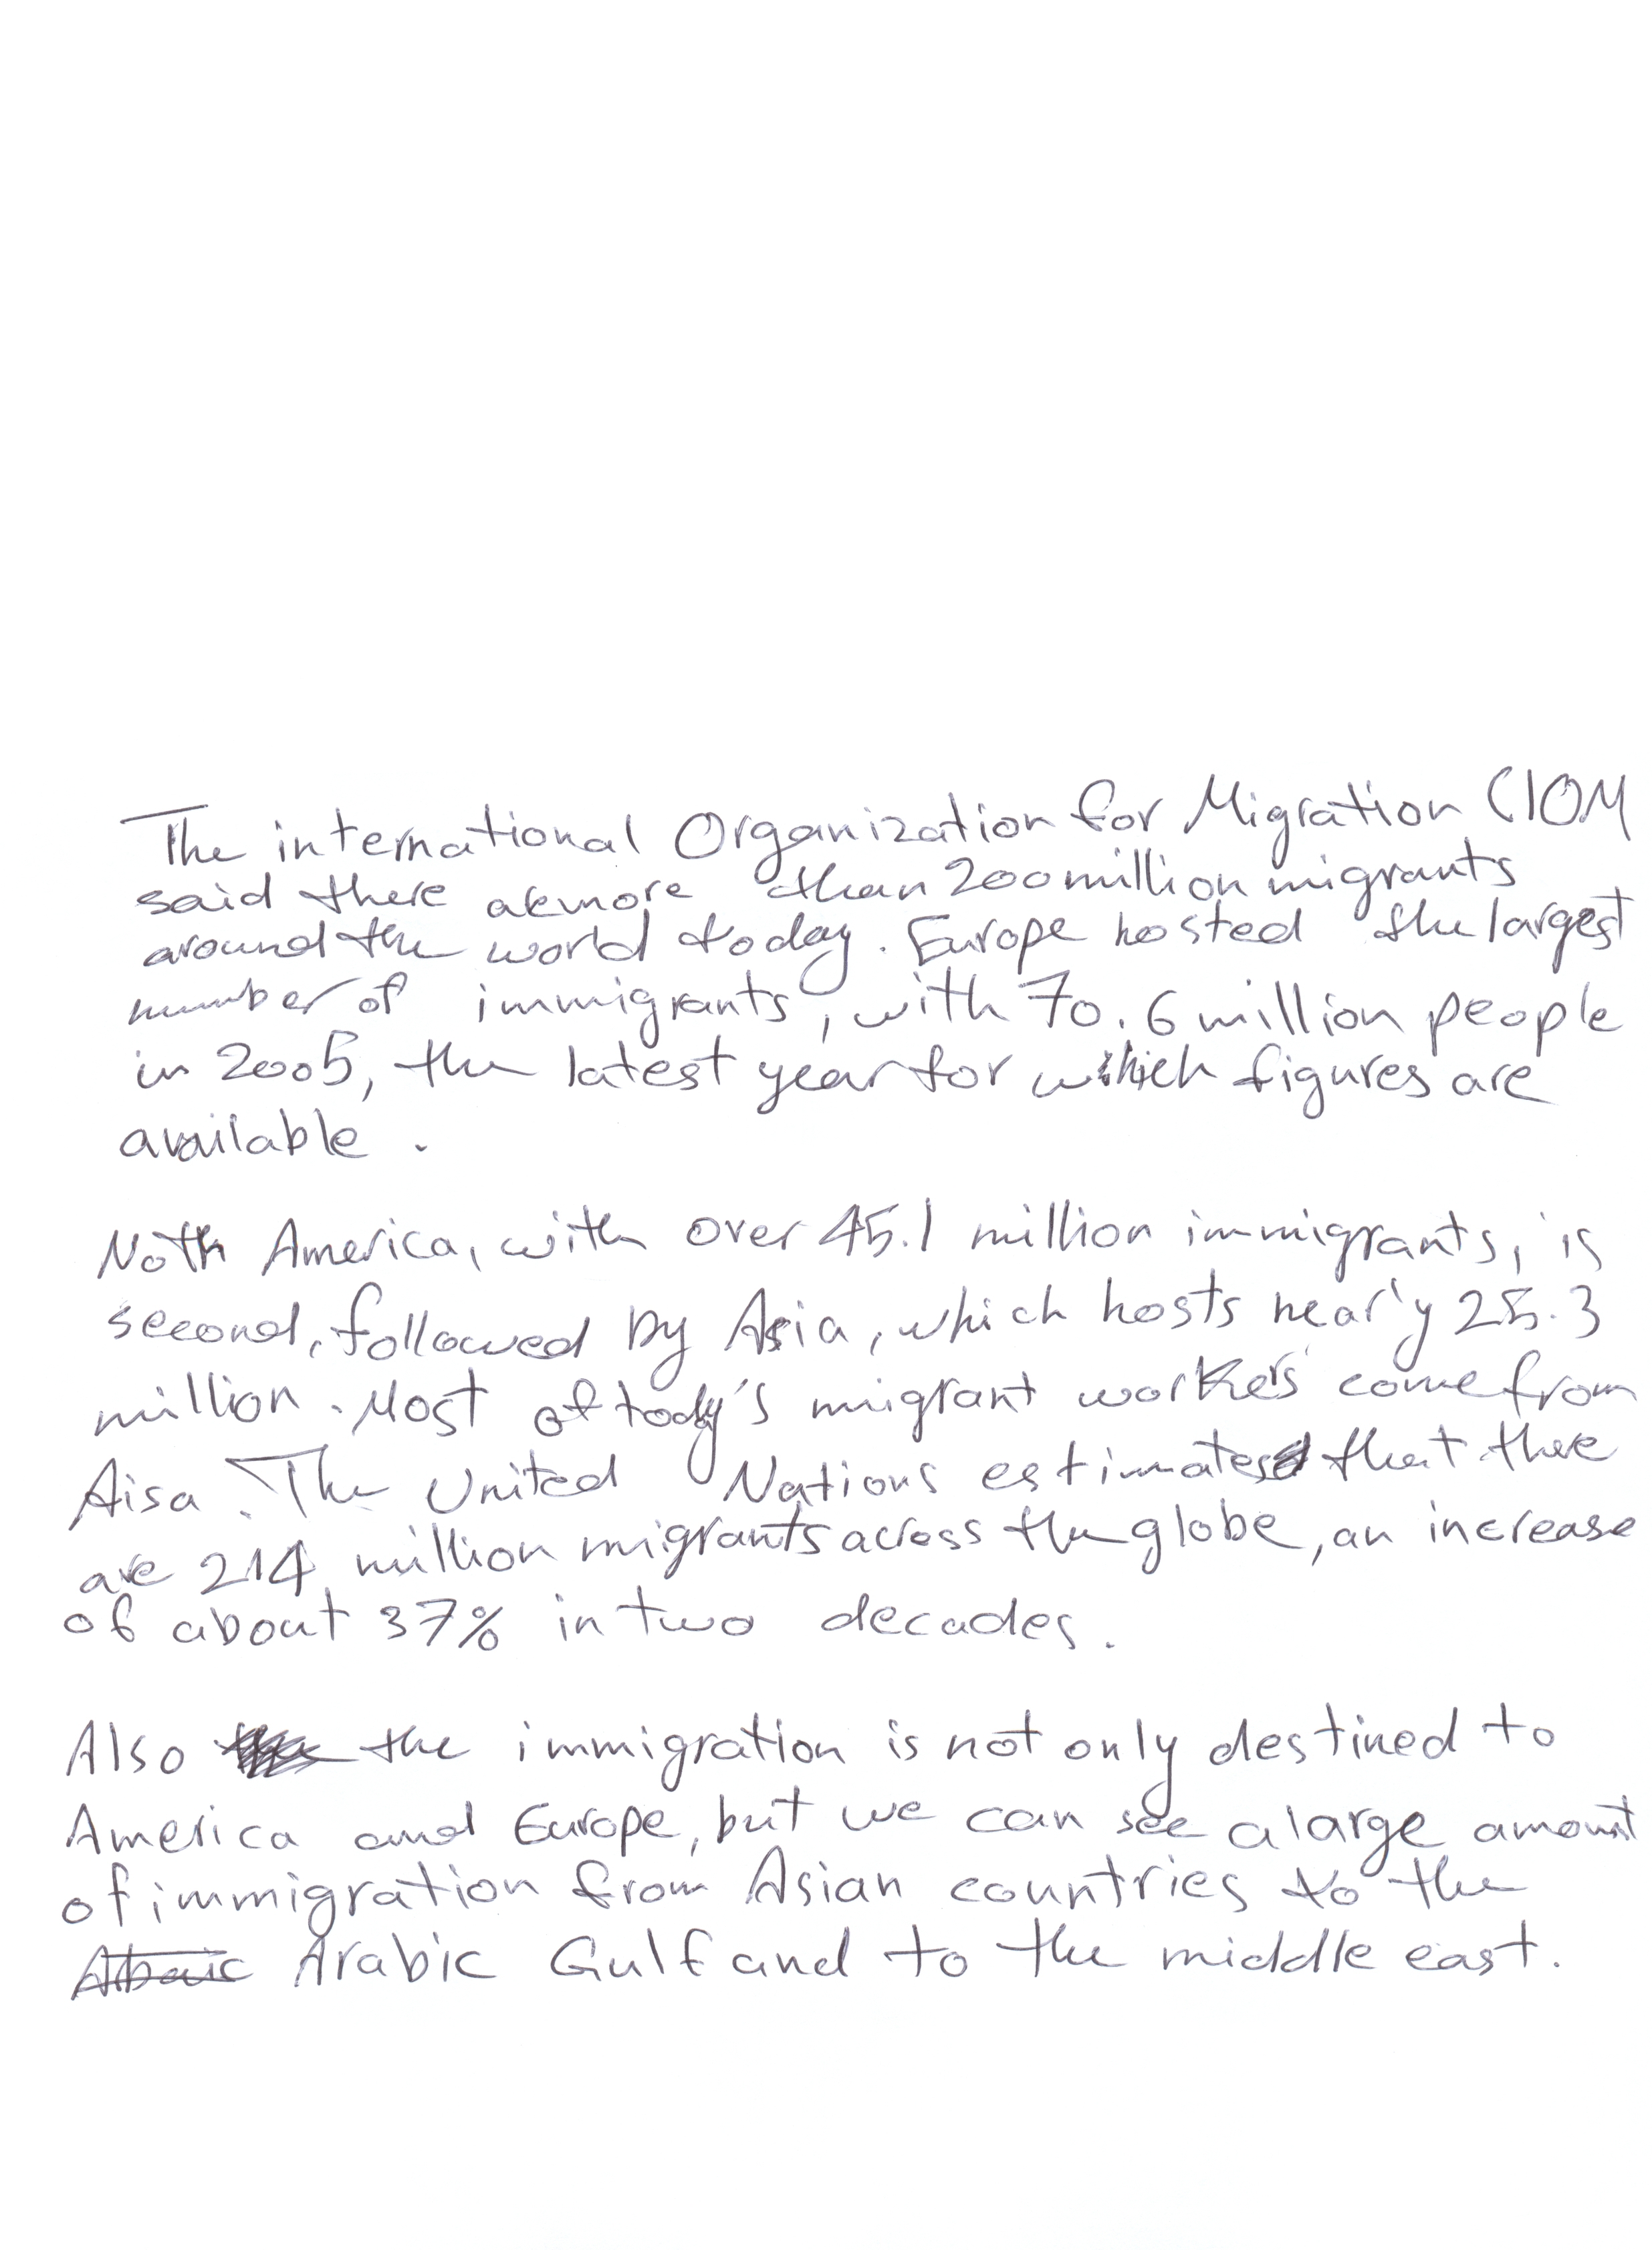 The international Organization for Migration (IOM
said there are more than 200 million migrants
around the world today. Europe hosted the largest
number of immigrants, with 70.6 million people
in 2005, the latest year for which figures are
available.
Noth America, with over 45.1 million immigrants, is
second, followed by Asia, which hosts nearly 25.3
million. Most of tody's migrant workers come from
Aisa. The United Nations estimates that there
are 214 million migrants across the globe, an increase
of about 37% in two decades.
Also the immigration is not only destined to
America and Europe, but we can see a large amount
of immigration from Asian countries to the
Arabic Gulf and to the middle east.